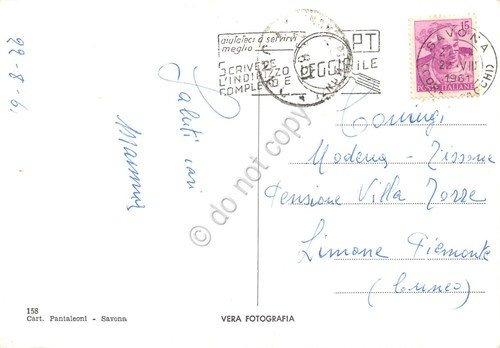 22-8-61
Saluti cari
aiutateci a servirvi
meglio
SCRIVERE
L'INDIRIZZO
COMPLETO E LEGGIBILE
PT
15
SAVONA
22 VIII
1961
POSTE ITALIANE
Modena - Tissone
Pensione Villa Torre
Limone Piemonte
(Cuneo)
do not copy
158
Cart. Pantaleoni - Savona
VERA FOTOGRAFIA